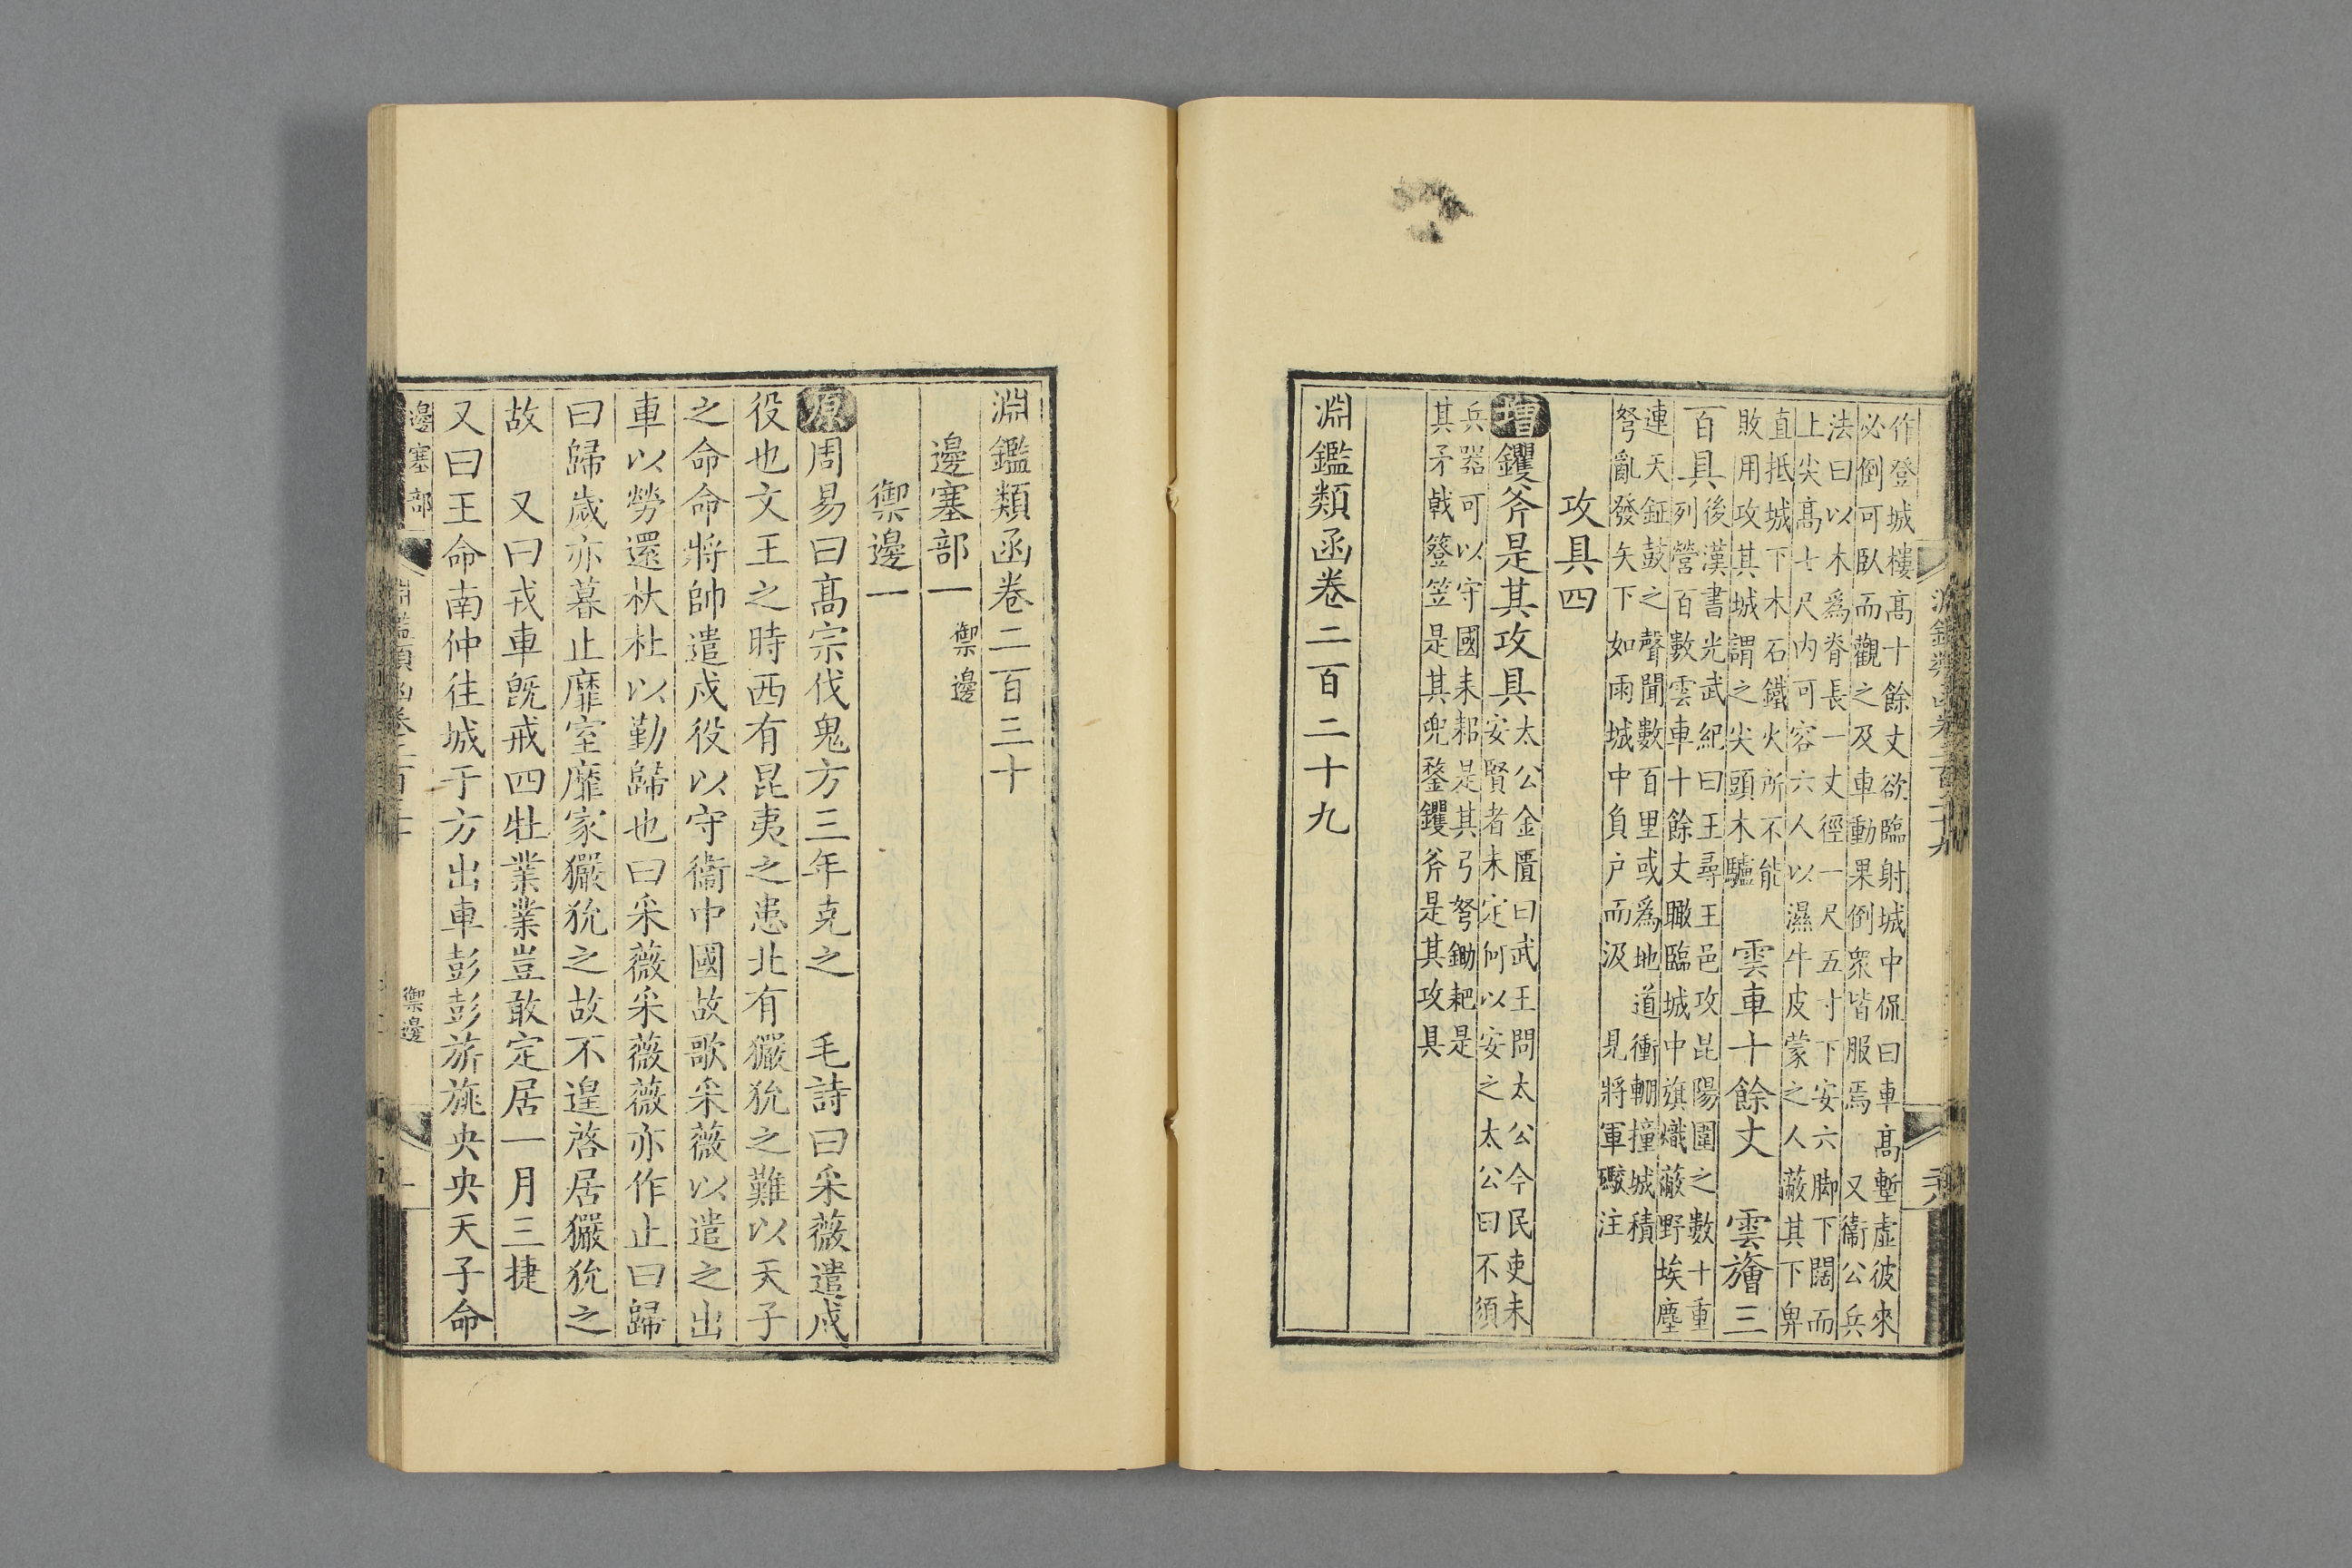 作登城樓高十餘丈欲臨射城中侃曰車高塹虛彼來
必倒可臥而觀之及車動果倒衆皆服焉　又衞公兵
法曰以木爲脊長一丈徑一尺五寸下安六脚下闊而
上尖高七尺内可容六人以濕牛皮蒙之人蔽其下舁
直抵城下木石鐵火所不能
敗用攻其城謂之尖頭木驢
雲車十餘丈　雲旝三
百具
後漢書光武紀曰王尋王邑攻昆陽圍之數十重
列營百數雲車十餘丈瞰臨城中旗幟蔽野埃塵
連天鉦鼓之聲聞數百里或爲地道衝輣撞城積
弩亂發矢下如雨城中負户而汲　見將軍礮注
攻具四
增钁斧是其攻具
太公金匱曰武王問太公今民吏未
安賢者未定何以安之太公曰不須
兵器可以守國耒耜是其弓弩鋤耙是
其矛戟簦笠是其兜鍪钁斧是其攻具
淵鑑類函卷二百二十九
淵鑑類函卷二百三十
邊塞部一　禦邊
禦邊一
原周易曰高宗伐鬼方三年克之　毛詩曰采薇遣戍
役也文王之時西有昆夷之患北有玁狁之難以天子
之命命將帥遣戍役以守衞中國故歌采薇以遣之出
車以勞還杕杜以勤歸也曰采薇采薇薇亦作止曰歸
曰歸歲亦暮止靡室靡家玁狁之故不遑啓居玁狁之
故　又曰戎車既戒四牡業業豈敢定居一月三捷
又曰王命南仲往城于方出車彭彭旂旐央央天子命
邊塞部
禦邊